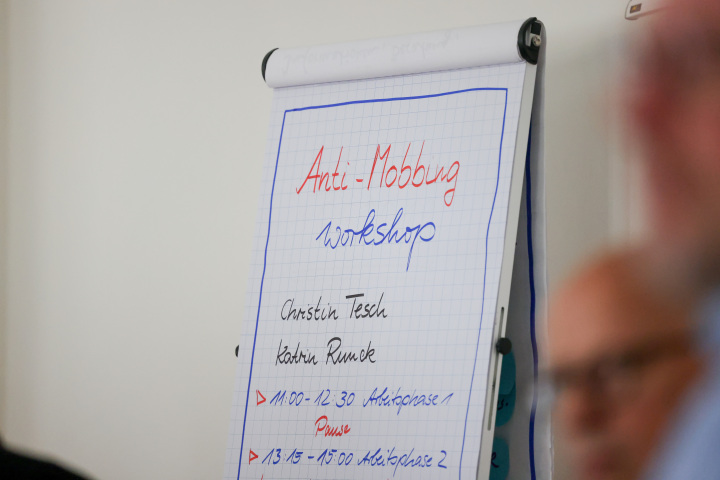 Anti-Mobbing
Workshop
Christin Tesch
Katrin Runck
11:00-12:30 Arbeitsphase 1
Pause
13:15-15:00 Arbeitsphase 2